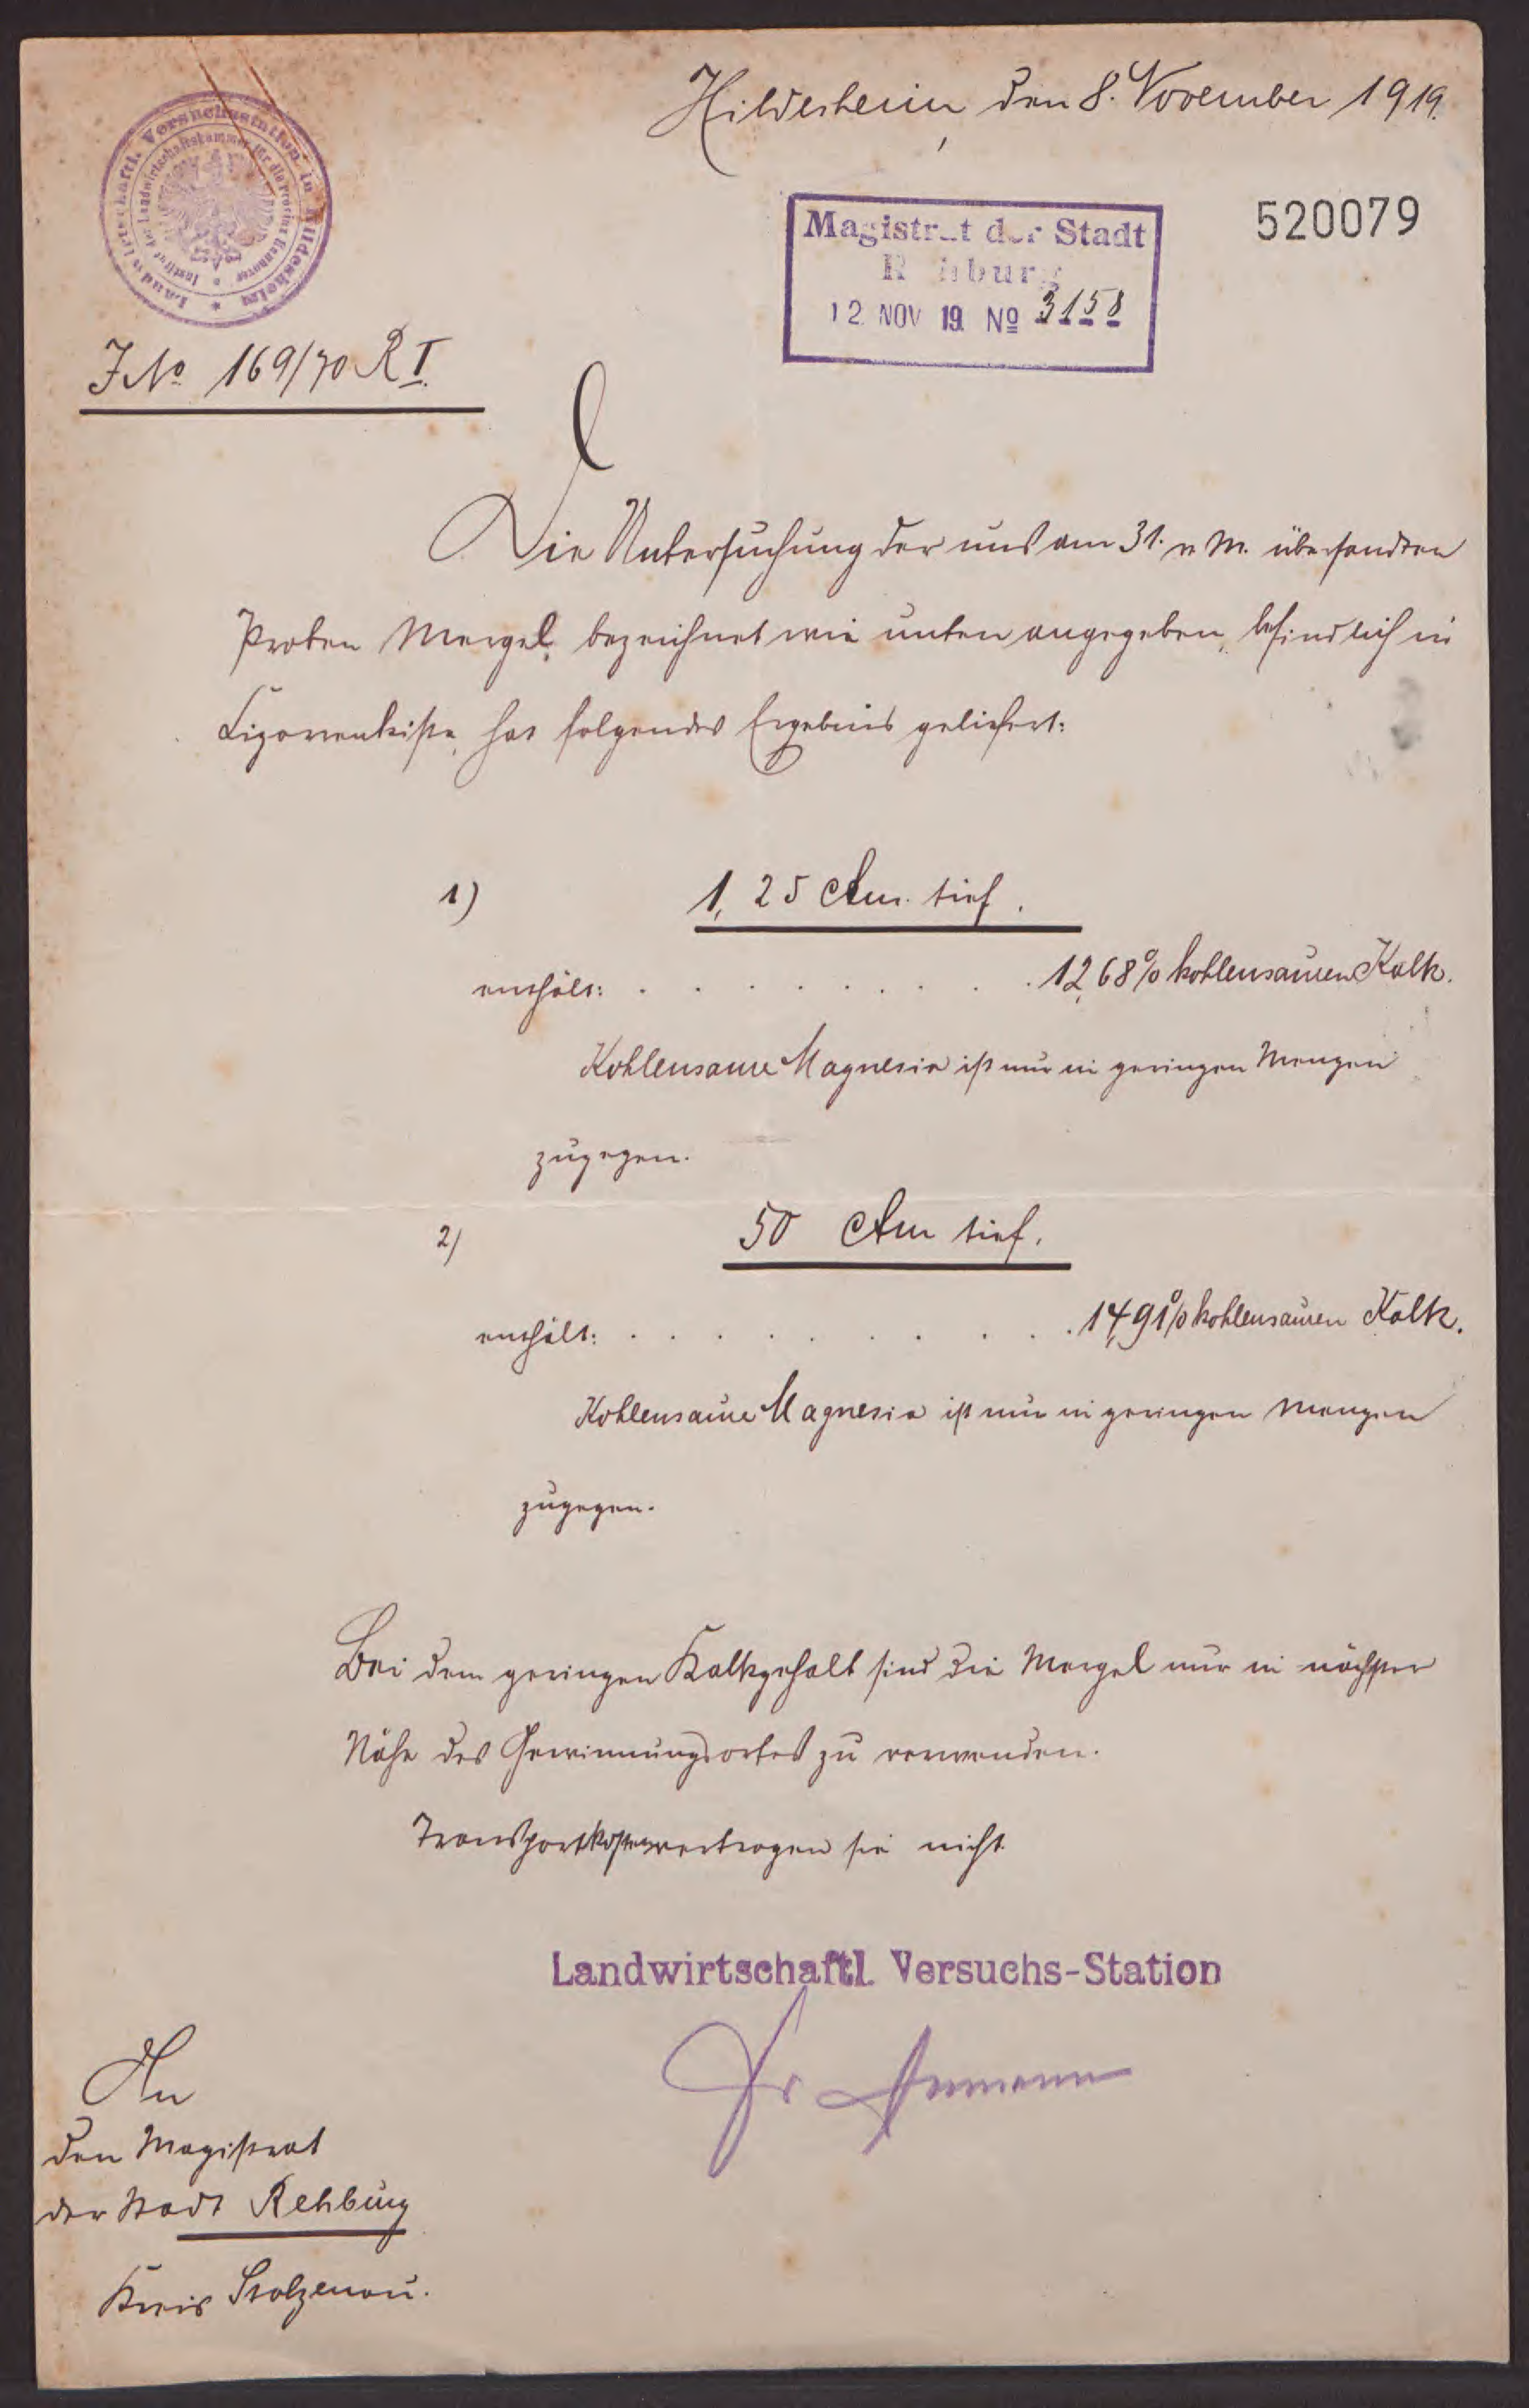 Hildesheim den 8. November 1919.
Landwirtschaftl. Versuchsstation in Hildesheim
Institut der Landwirtschaftskammer für die Provinz Hannover
Magistrat der Stadt
Rehburg
12. NOV 19. No 3158
520079
J.No 169/70 R I.
Die Untersuchung der uns am 31. v. M. übersandten
Proben Mergel, bezeichnet wie unten angegeben, befindlich in
Zigarrenkiste, hat folgendes Ergebnis geliefert:
1) 1,25 Ctm. tief.
enthält: . . . . . . . . . . 12,68% kohlensauren Kalk.
Kohlensaure Magnesia ist nur in geringen Mengen
zugegen.
2) 50 Ctm tief.
enthält: . . . . . . . . . . 14,91% kohlensauren Kalk.
Kohlensaure Magnesia ist nur in geringen Mengen
zugegen.
Bei dem geringen Kalkgehalt sind die Mergel nur in nächster
Nähe des Gewinnungsortes zu verwenden.
Transportkosten vertragen sie nicht.
Landwirtschaftl. Versuchs-Station
Dr
An
den Magistrat
der Stadt Rehburg
Kreis Stolzenau.